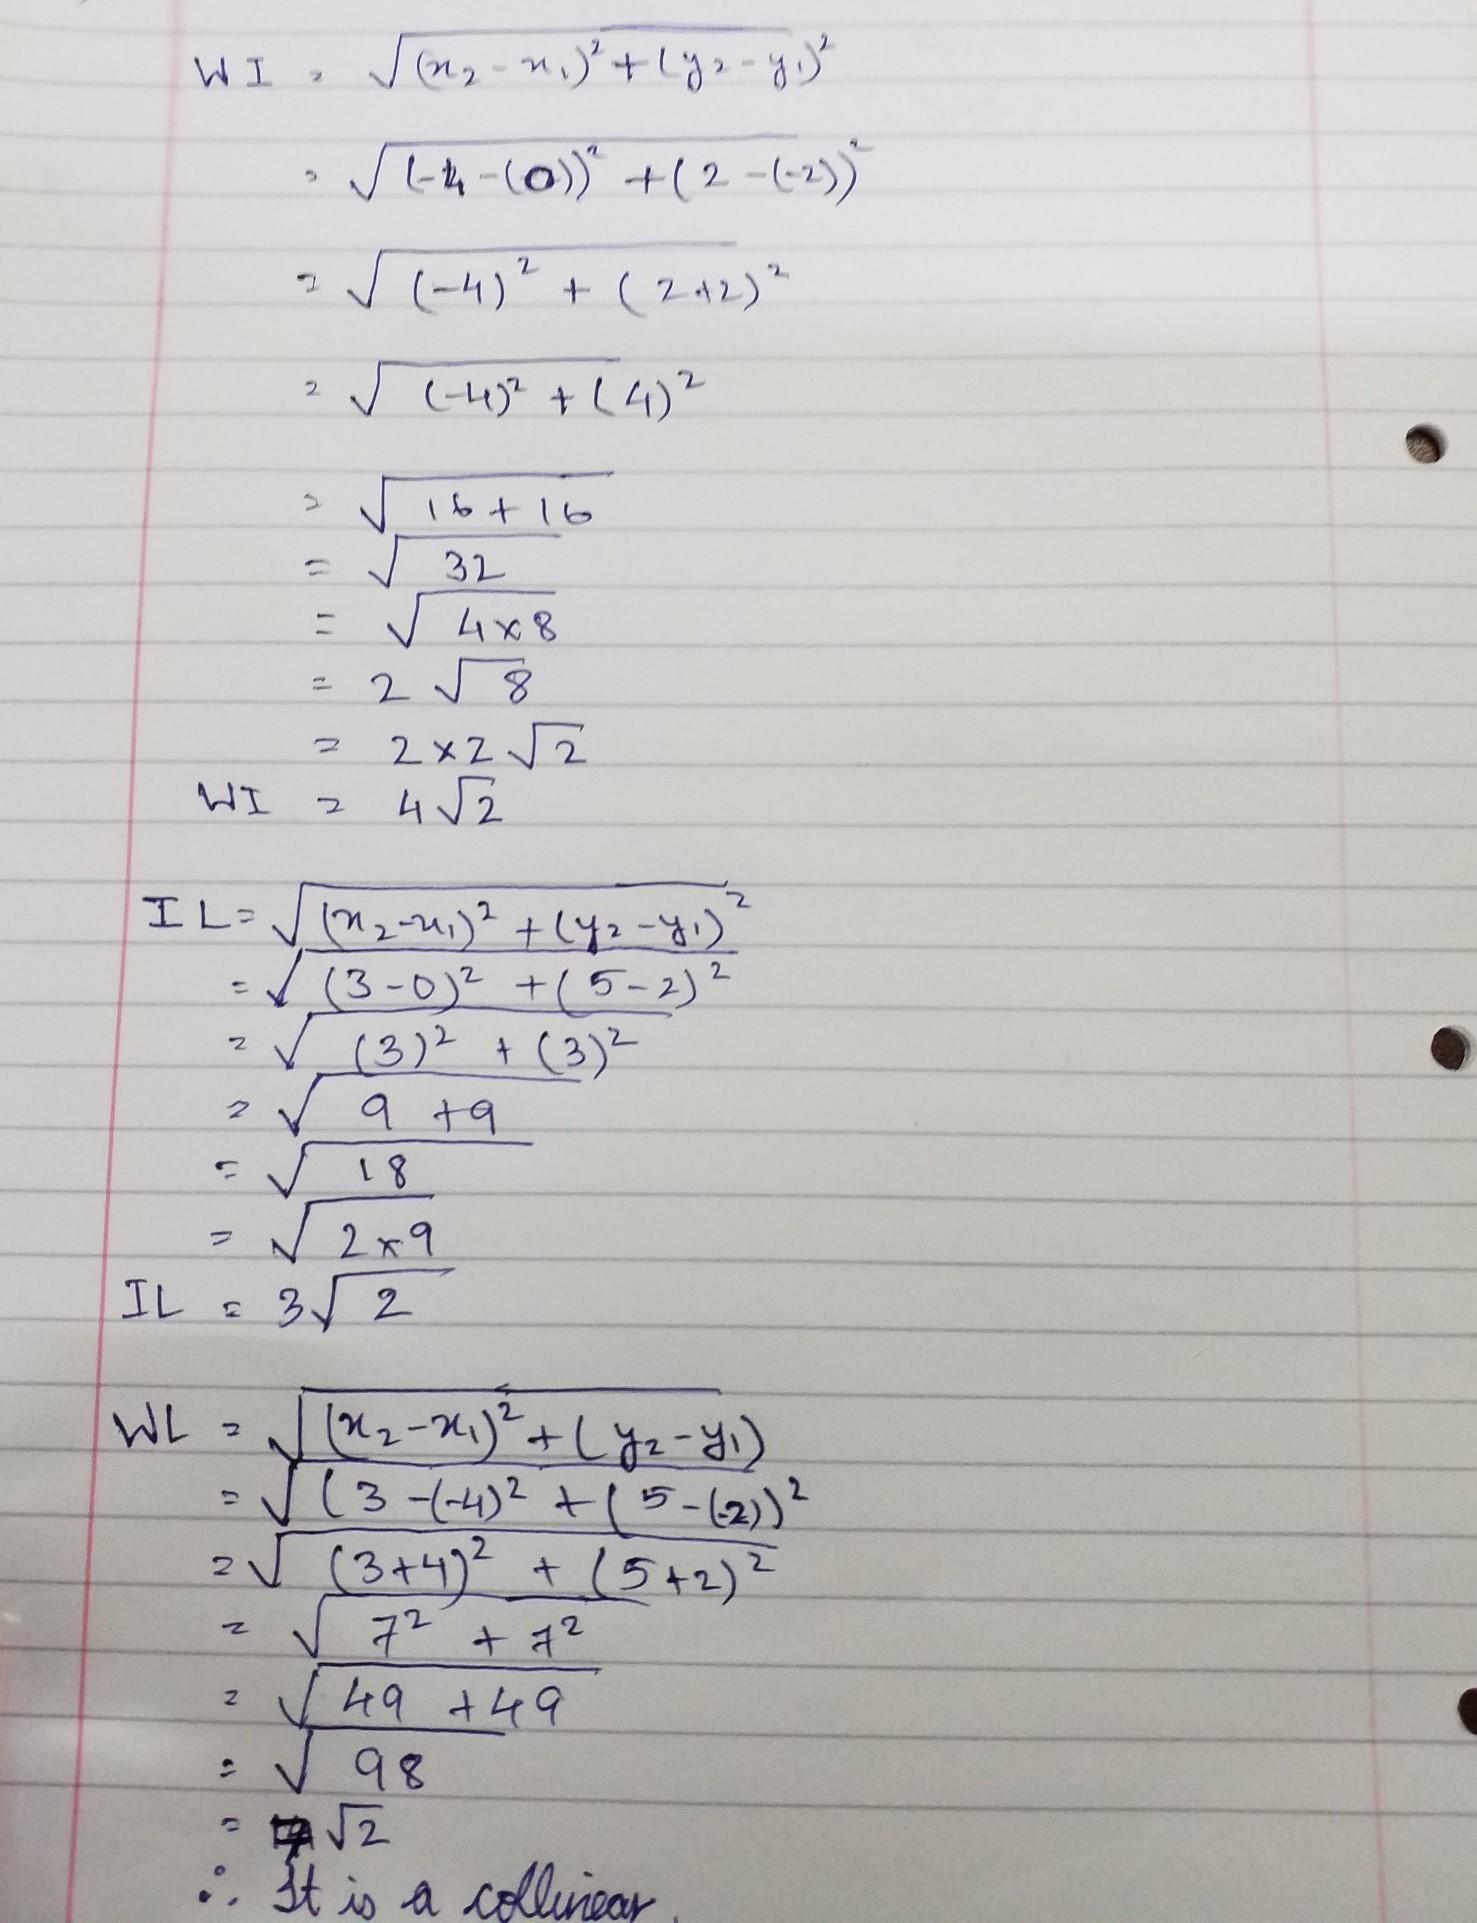 WI = √(x₂-x₁)²+(y₂-y₁)²
= √(-4-(0))² +(2-(-2))²
= √(-4)² + (2+2)²
= √(-4)² + (4)²
= √16+16
= √32
= √4×8
= 2√8
= 2×2√2
WI = 4√2
IL= √(x₂-x₁)² +(y₂-y₁)²
= √(3-0)² +(5-2)²
= √(3)² + (3)²
= √9 +9
= √18
= √2×9
IL = 3√2
WL = √(x₂-x₁)²+(y₂-y₁)
= √(3-(-4)² +(5-(-2))²
= √(3+4)² + (5+2)²
= √7² + 7²
= √49 +49
= √98
= 7√2
∴ It is a collinear.